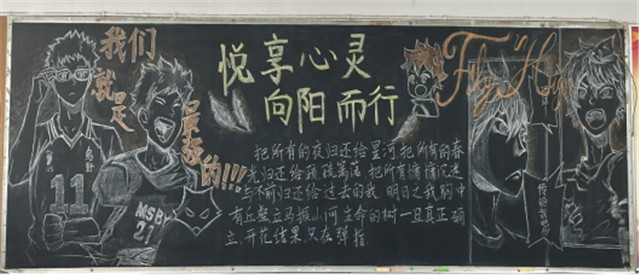 我们
就是
最强
的!!!
悦享心灵
向阳而行
Fly High
把所有的夜归还给星河,把所有的春
光归还给疏疏篱落,把所有慵慵沉迷
与不前归还给过去的我。明日之我,胸中
有丘壑,立马振山河.生命的树一旦真正确
立,开花结果,只在弹指.
乌野
11
MSBY
21